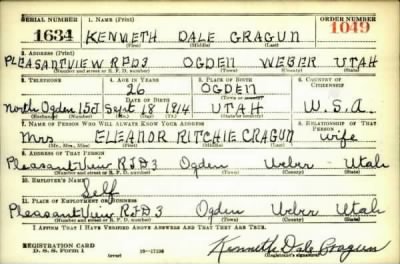 SERIAL NUMBER 1. NAME (Print) ORDER NUMBER
1634 KENNETH DALE CRAGUN 1049
(First) (Middle) (Last)
2. ADDRESS (Print)
PLEASANTVIEW RFD3 OGDEN WEBER UTAH
(Number and street or R. F. D. number) (Town) (County) (State)
3. TELEPHONE 4. AGE IN YEARS 5. PLACE OF BIRTH 6. COUNTRY OF CITIZENSHIP
26 OGDEN
(Town or county)
DATE OF BIRTH
North Ogden 15J Sept. 18 1914 UTAH U.S.A.
(Exchange) (Number) (Mo.) (Day) (Yr.) (State or country)
7. NAME OF PERSON WHO WILL ALWAYS KNOW YOUR ADDRESS 8. RELATIONSHIP OF THAT PERSON
Mrs ELEANOR RITCHIE CRAGUN wife
(Mr., Mrs., Miss) (First) (Middle) (Last)
9. ADDRESS OF THAT PERSON
Pleasant View RFD3 Ogden Weber Utah
(Number and street or R. F. D. number) (Town) (County) (State)
10. EMPLOYER'S NAME
Self
11. PLACE OF EMPLOYMENT OR BUSINESS
Pleasant View RFD3 Ogden Weber Utah
(Number and street or R. F. D. number) (Town) (County) (State)
I AFFIRM THAT I HAVE VERIFIED ABOVE ANSWERS AND THAT THEY ARE TRUE.
REGISTRATION CARD
D. S. S. Form 1 Kenneth Dale Cragun
(Registrant's signature)